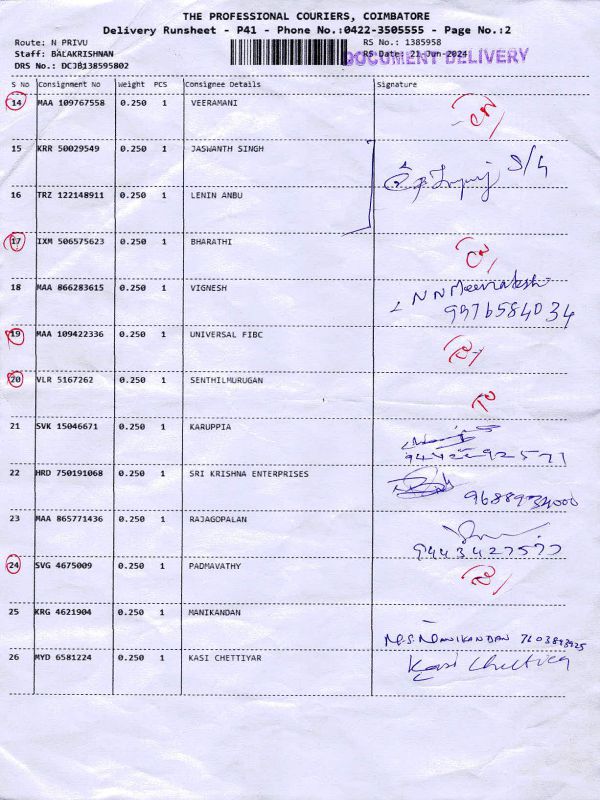 THE PROFESSIONAL COURIERS, COIMBATORE
Delivery Runsheet - P41 - Phone No.:0422-3505555 - Page No.:2
Route: N PRIVU RS No.: 1385958
Staff: BALAKRISHNAN RS Date: 21-Jun-2024
DOCUMENT DELIVERY
DRS No.: DCJB138595802
S No Consignment No Weight PCS Consignee Details Signature
14 MAA 109767558 0.250 1 VEERAMANI
15 KRR 50029549 0.250 1 JASWANTH SINGH
16 TRZ 122148911 0.250 1 LENIN ANBU
17 IXM 506575623 0.250 1 BHARATHI
18 MAA 866283615 0.250 1 VIGNESH
9976584034
19 MAA 109422336 0.250 1 UNIVERSAL FIBC
20 VLR 5167262 0.250 1 SENTHILMURUGAN
21 SVK 15046671 0.250 1 KARUPPIA
22 HRD 750191068 0.250 1 SRI KRISHNA ENTERPRISES
23 MAA 865771436 0.250 1 RAJAGOPALAN
24 SVG 4675009 0.250 1 PADMAVATHY
25 KRG 4621904 0.250 1 MANIKANDAN
MANIKANDAN
26 MYD 6581224 0.250 1 KASI CHETTIYAR
Kasi